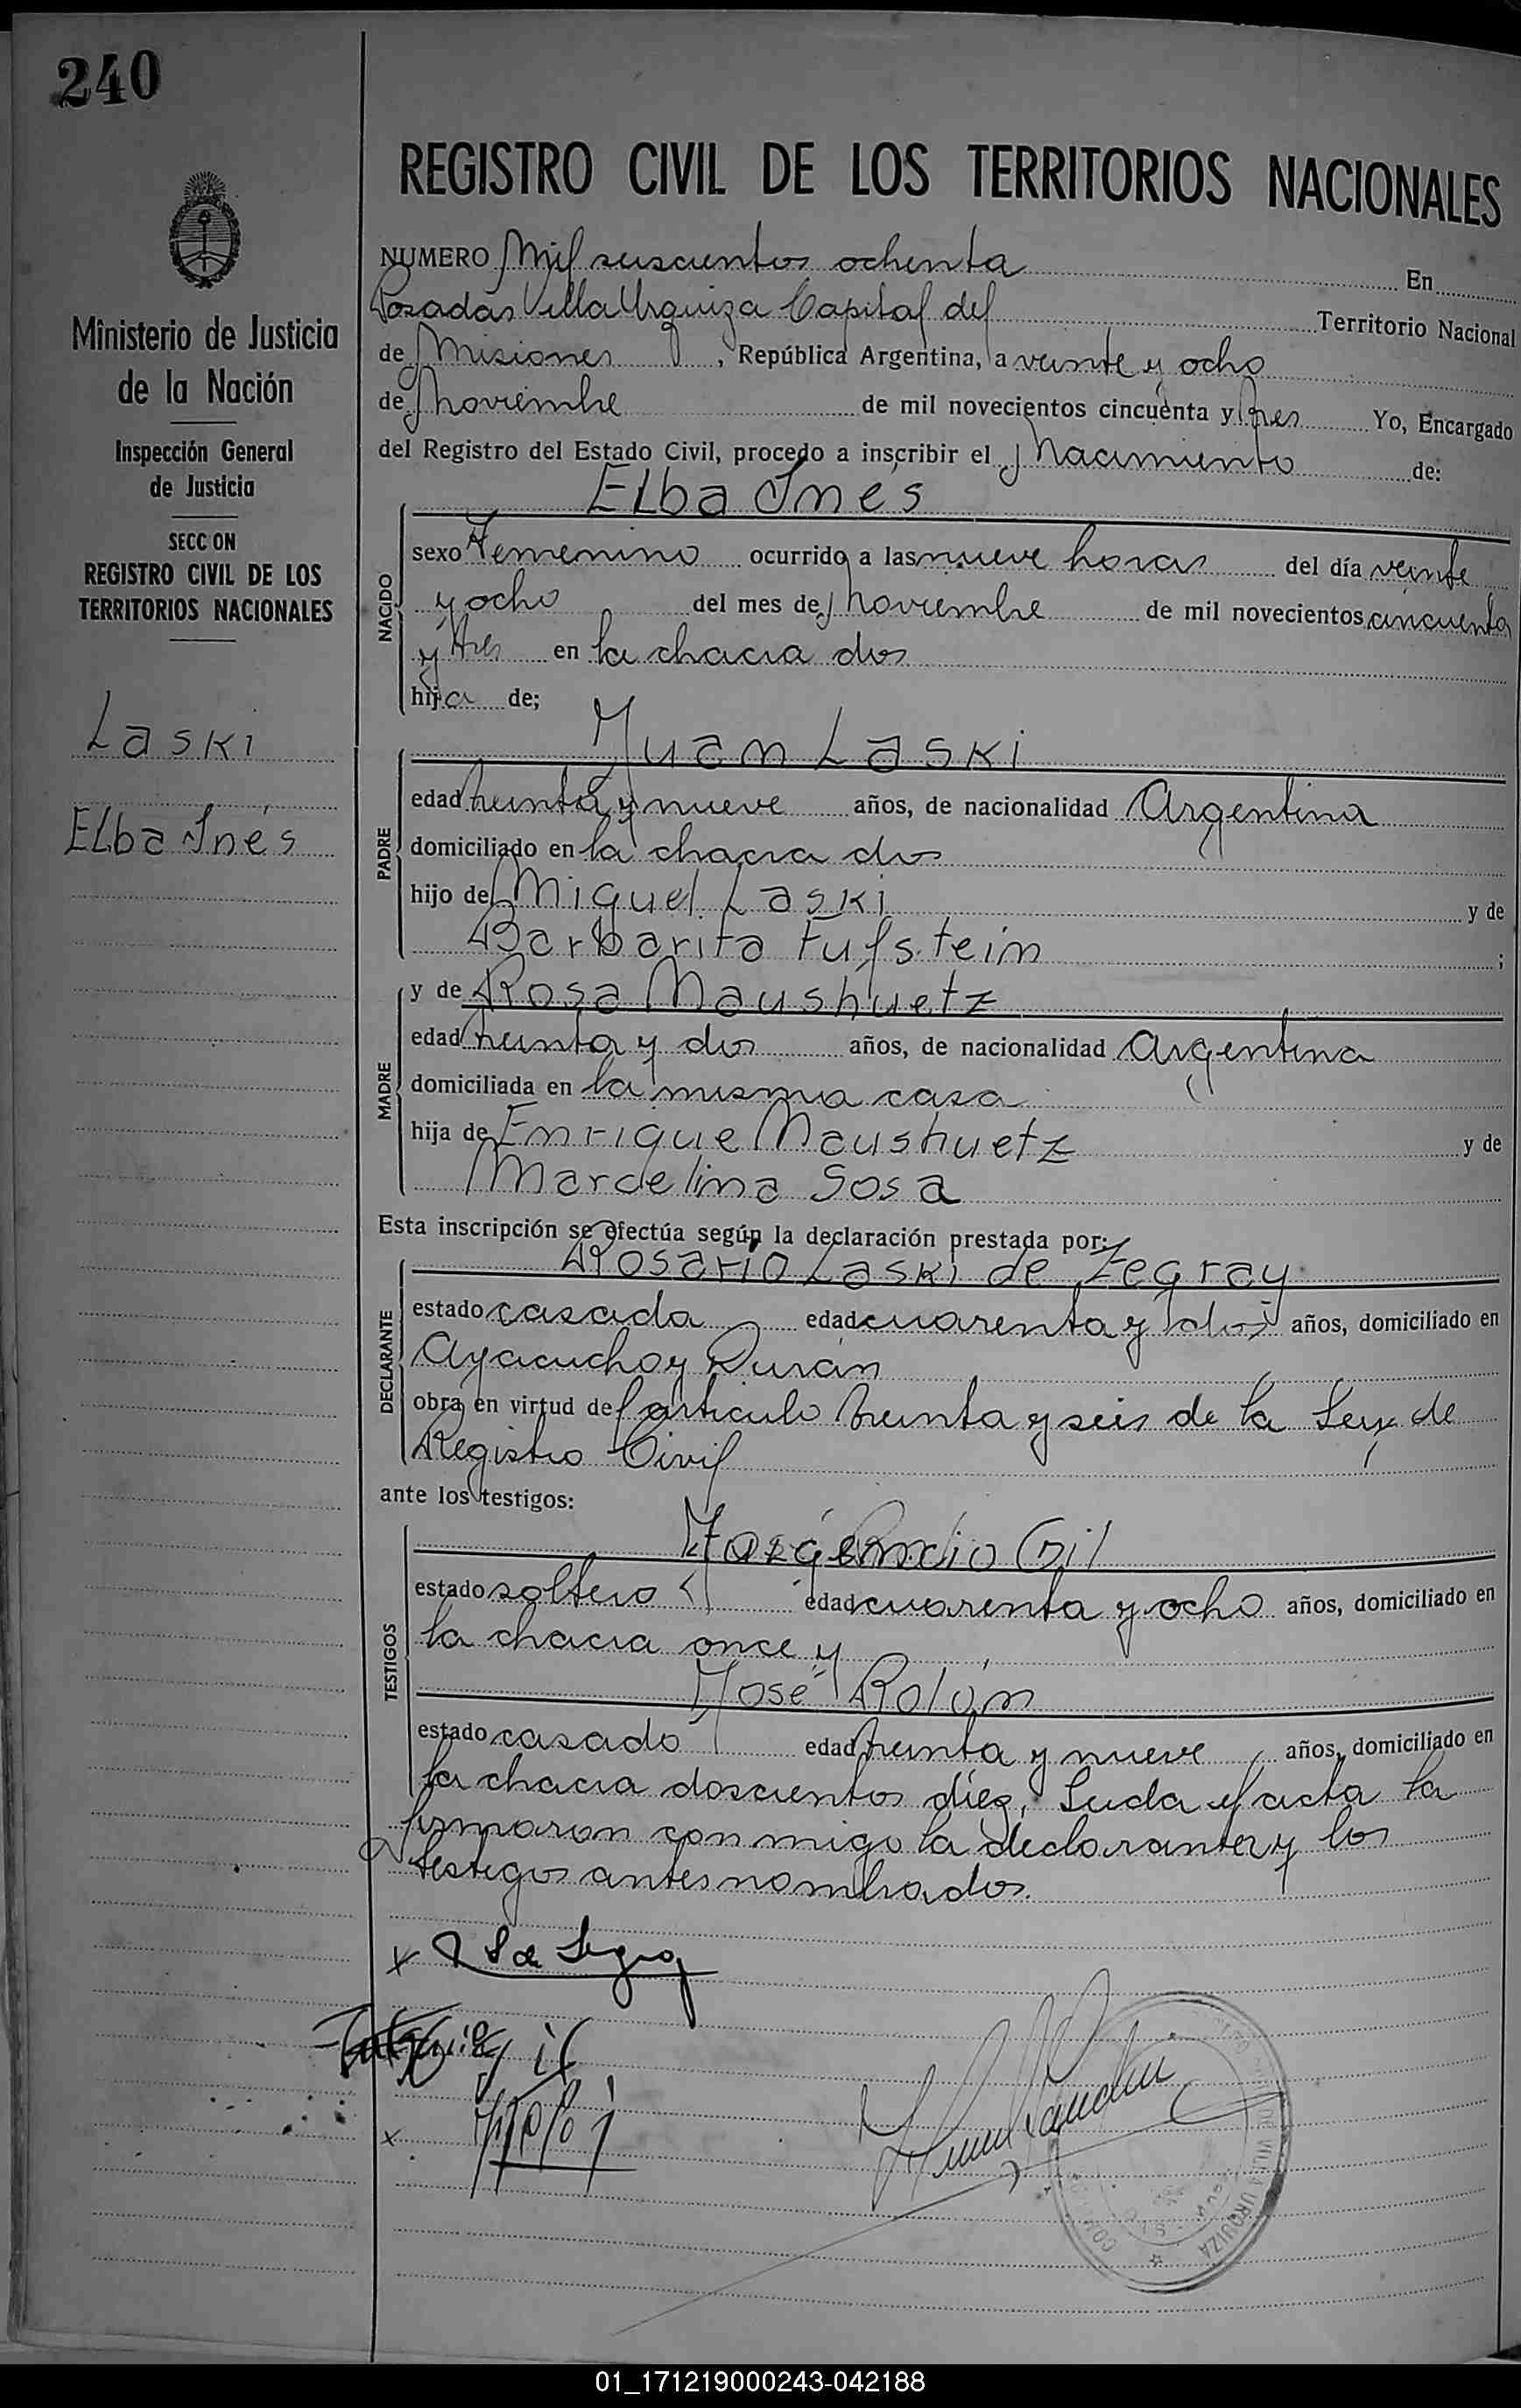 240
Ministerio de Justicia
de la Nación
Inspección General
de Justicia
SECC ON
REGISTRO CIVIL DE LOS
TERRITORIOS NACIONALES
Laski
Elba Inés
REGISTRO CIVIL DE LOS TERRITORIOS NACIONALES
NUMERO Mil seiscientos ochenta En
Posadas Villa Urquiza Capital del Territorio Nacional
de Misiones, República Argentina, a veinte y ocho
de Noviembre de mil novecientos cincuenta y tres Yo, Encargado
del Registro del Estado Civil, procedo a inscribir el Nacimiento de:
Elba Inés
NACIDO
sexo Femenino ocurrido a las nueve horas del día veinte
y ocho del mes de Noviembre de mil novecientos cincuenta
y tres en la chacra dos
hija de;
Juan Laski
PADRE
edad treinta y nueve años, de nacionalidad Argentina
domiciliado en la chacra dos
hijo de Miguel Laski y de
Barbarita Fufstein;
MADRE
y de Rosa Maushuetz
edad treinta y dos años, de nacionalidad Argentina
domiciliada en la misma casa
hija de Enrique Maushuetz y de
Marcelina Sosa
Esta inscripción se efectúa según la declaración prestada por:
Rosario Laski de Zegray
DECLARANTE
estado casada edad cuarenta y dos años, domiciliado en
Ayacucho y Durán
obra en virtud del artículo treinta y seis de la Ley de
Registro Civil
ante los testigos:
Gil
TESTIGOS
estado soltero edad cuarenta y ocho años, domiciliado en
la chacra once y
José Rolón
estado casado edad treinta y nueve años, domiciliado en
la chacra doscientos diez, Leida el acta la
firmaron conmigo la declarante y los
testigos antes nombrados.
VILLA URQUIZA
01_171219000243-042188